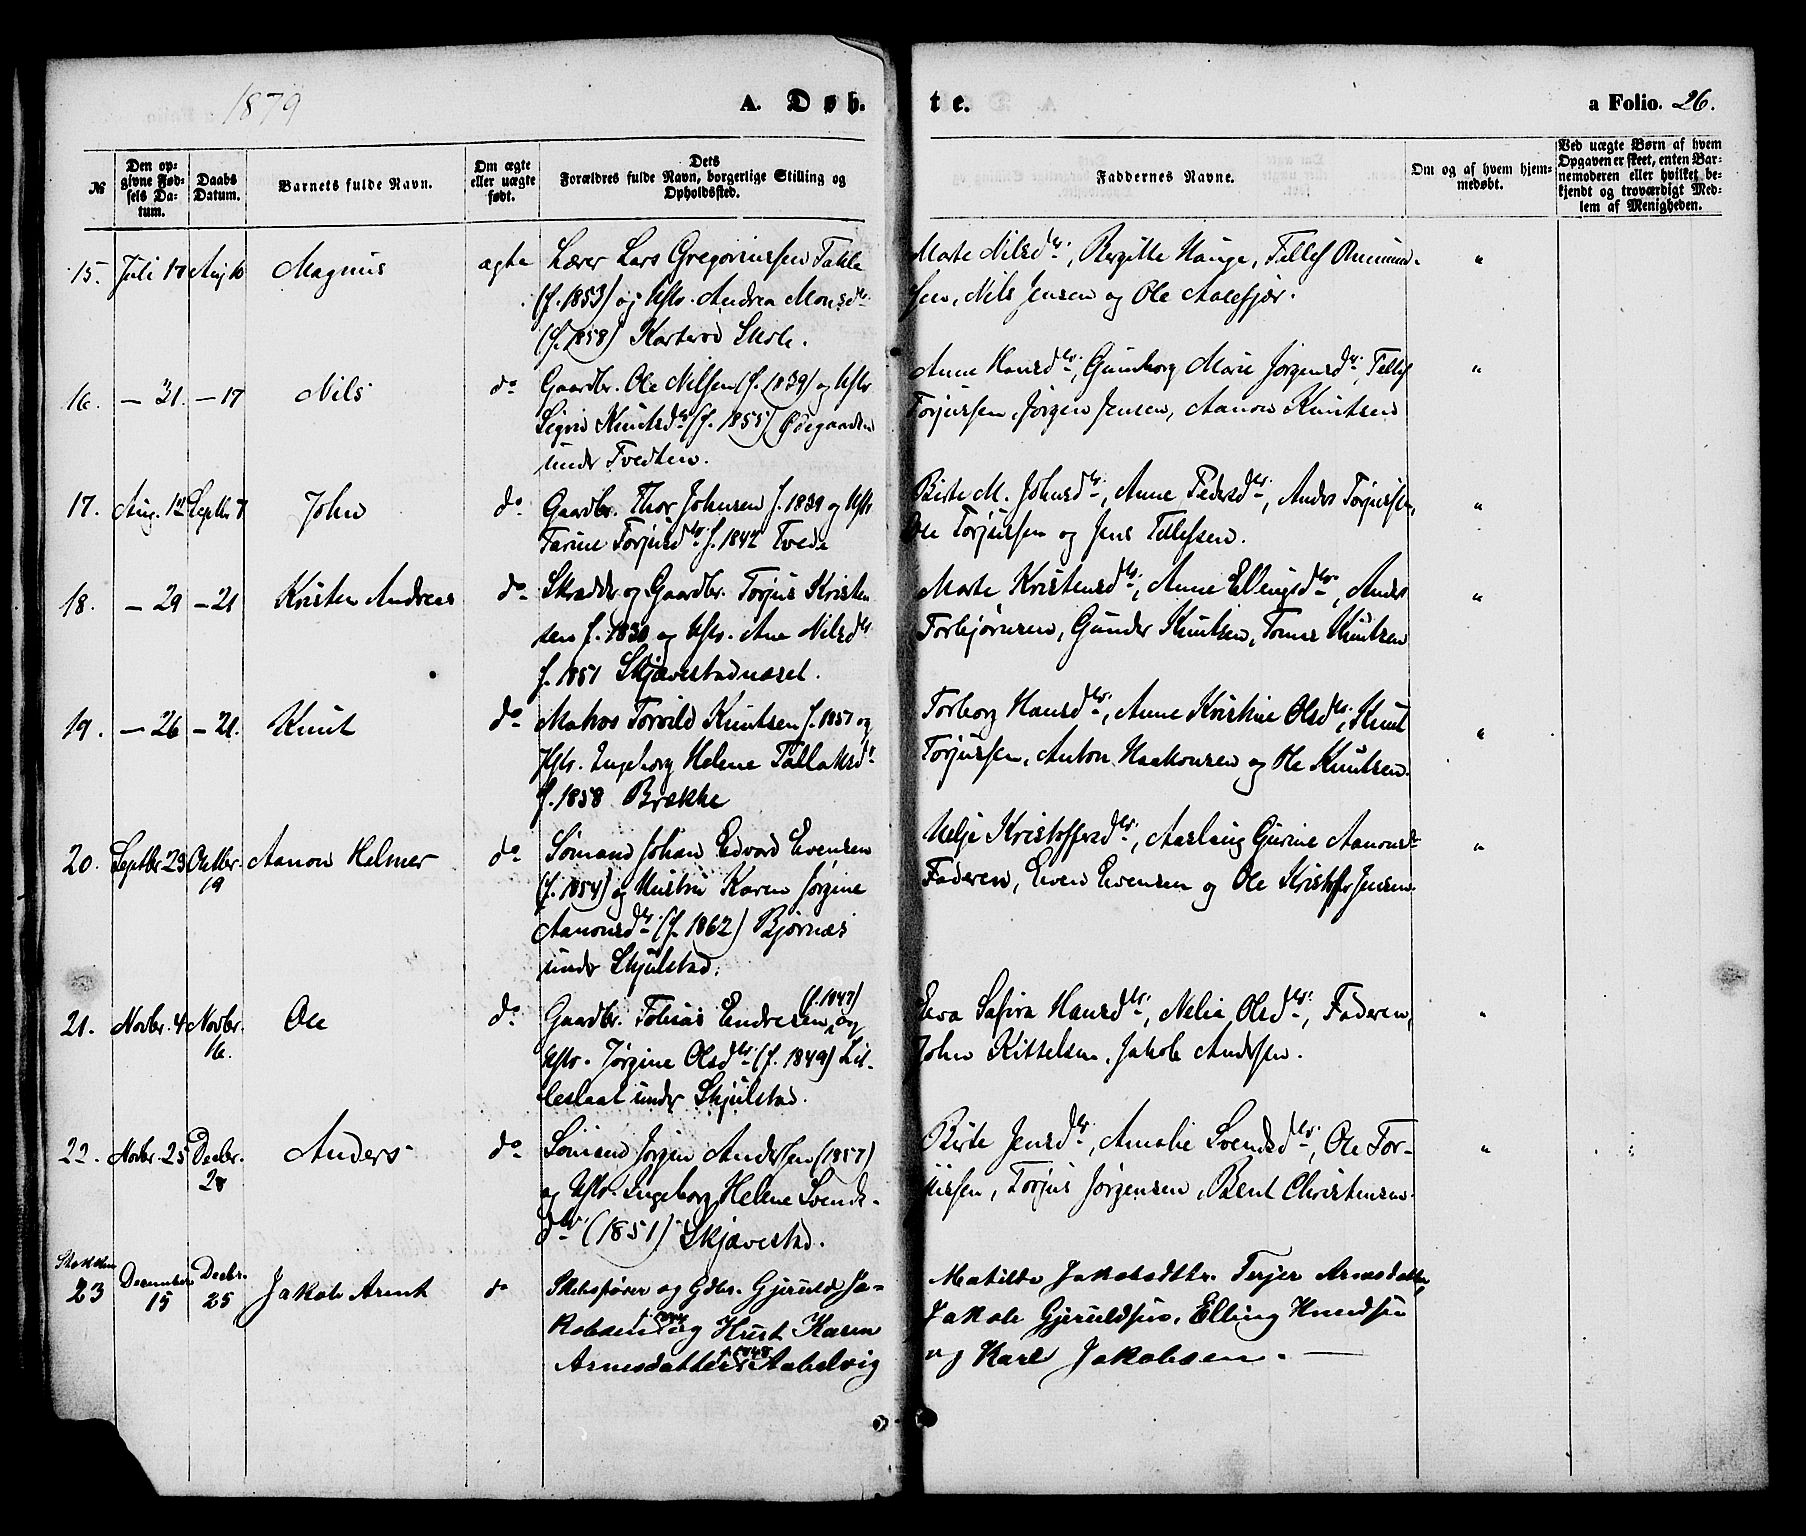 1879
A. Døb-
te.
a Folio. 26.
№
Den op-
givne Fød-
sels Da-
tum.
Daabs
Datum.
Barnets fulde Navn.
Om ægte
eller uægte
født.
Dets
Forældres fulde Navn, borgerlige Stilling og
Opholdssted.
Faddernes Navne.
Om og af hvem hjem-
medøbt.
Ved uægte Børn af hvem
Opgaven er skeet, enten Bar-
nemoderen eller hvilket be-
kjendt og troværdigt Med-
lem af Menigheden.
15. Juli 17 Aug 10 Magnus ægte Lærer Lars Gregoriussen Takle
(f. 1853) og Hstr. Andrea Monsdtr.
(f. 1858) Karterød Skole.
Marte Nilsdtr., Bergitte Hauge, Tellef
sen, Nils Jensen og Ole Aalefjær.
"
16. — 31. — 17 Nils do Gaardbr. Ole Nilsen (f. 1839) og Hstr.
Sigrid Knutsdtr (f. 1855) Ødegaarden
under Tvedten.
Anne Hansdtr., Gunborg Marie Jørgensdtr., Tellef
Torjussen, Jørgen Jensen, Aanon Knutsen
"
17. Aug. 12 Septbr 7 John do Gaardbr. Thor Johnsen f. 1839 og Hstr.
Tarine Torjusdtr f. 1842 Tvede
Birte M. Johnsdtr., Anne Pedersdtr., Anders Torjussen,
Ole Torjussen og Jens Tellefsen.
"
18. — 29 — 21 Kristen Andreas do Skrædder og Gaardbr. Torjus Kristen
sen f. 1830 og Hstr. Ane Nilsdtr
f. 1851 Skjævestadnæset.
Marte Kristensdtr., Anne Ellingsdtr., Anders
Torbjørnsen, Gunder Knutsen, Tomes Knutsen
"
19. — 26 — 21. Knut do Matros Torvild Knutsen f. 1857 og
Hstr. Ingeborg Helene Tallaksdtr
f. 1858 Brække
Torborg Hansdtr., Anne Kristine Olsdtr., Knut
Torjussen, Anton Haakonsen og Ole Knutsen.
"
20. Septbr. 29 Octbr.
19
Aanon Helmer do Sømand Johan Edvard Evensen
(f. 1854) og Hustru Karen Jørgine
Aanonsdtr. (f. 1862) Bjørnæs
under Skjulstad.
Helje Kristoffersdtr., Aaslaug Gurine Aanonsdtr
Faderen, Even Evensen og Ole Kristoffer Jensen.
"
21. Novbr. 4 Novbr.
16.
Ole do Gaardbr. Tobias Endresen (f. 1847) og
Hstr. Jørgine Olsdtr. (f. 1849) Lil-
leslaat under Skjulstad.
Eva Safira Hansdtr., Nelia Olsdtr., Faderen,
John Kittelsen, Jakob Andersen.
"
22. Novbr. 25 Decbr.
28
Anders do Sømand Jørgen Andersen (1857)
og Hstr. Ingeborg Helene Svends-
dtr. (1851) Skjævestad.
Birte Jensdtr., Amalie Svendsdtr., Ole Tor-
jussen, Torjus Jørgensen, Bent Christensen.
"
Stokken
23 December
15
Decbr.
25
Jakob Arent do Skibsfører og Gdbr. Gjeruld Ja-
kobsen og Hust. Karen
Arnesdatter f. 1848 Aabelvig
Matilde Jakobsdttr. Terjer Arnesdatter,
Jakob Gjeruldsen, Elling Knudsen
og Karl Jakobsen. —